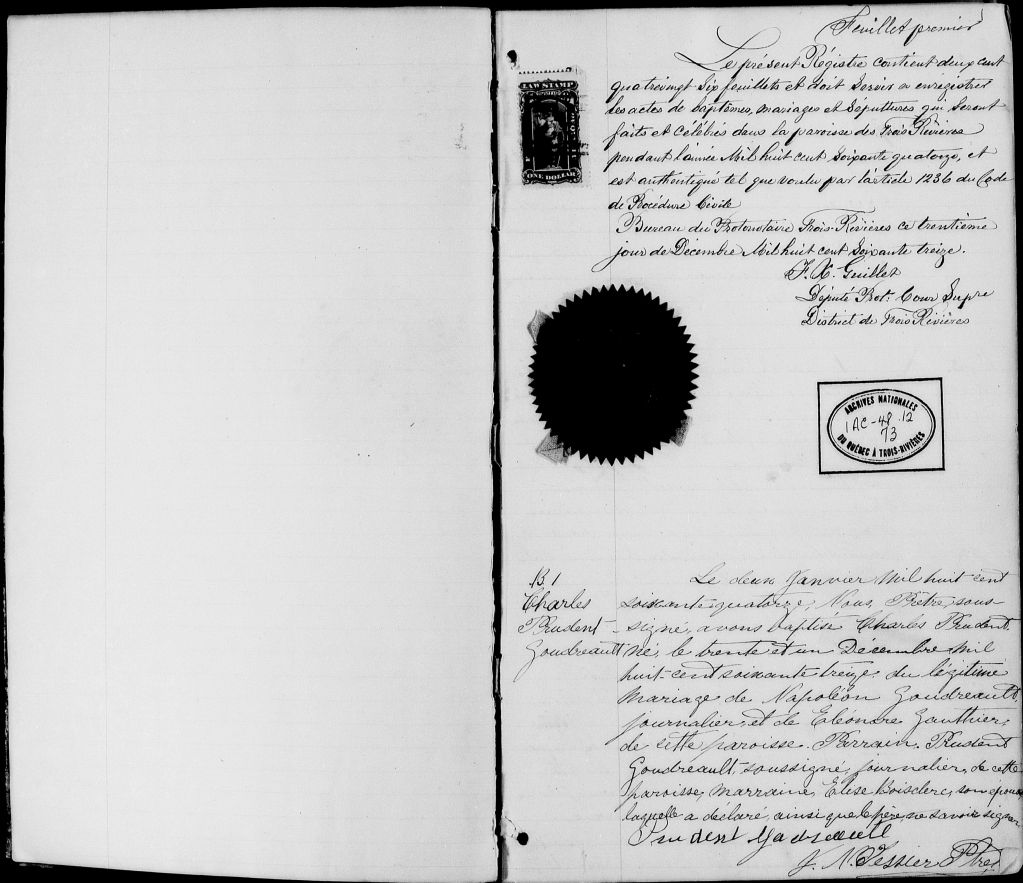 Feuillet premier
Le présent Régistre contient deux cent
quatrevingt Six feuillets et doit Servir a enrégistrer
les actes de baptêmes, mariages et Sépultures qui Seront
faits et Célébrés dans la paroisse des Trois Rivières
pendant l'année Mil huit cent Soixante quatorze, et
est authentiqué tel que voulu par l'article 1236 du Code
de Procédure Civile
Bureau du Protonotaire Trois-Rivières ce trentième
jour de Décembre Mil huit cent Soixante treize.
F. X. Guillet
Député Prot. Cour Supre
District de Trois Rivières
LAW STAMP
ONE DOLLAR
ARCHIVES NATIONALES
1 AC-48.12
73
DU QUÉBEC À TROIS-RIVIÈRES
B 1
Charles
Prudent
Goudreault
Le deux Janvier Mil huit cent
soixante-quatorze, Nous, Prêtre, sous-
signé, avons baptisé Charles Prudent
né, le trente et un Décembre Mil
huit-cent soixante treize, du légitime
mariage de Napoléon Goudreault,
journalier, et de Eléonore Gauthier,
de cette paroisse. Parrain, Prudent
Goudreault, soussigné, journalier, de cette
paroisse, marraine, Elise Boisclerc, son épouse
laquelle a déclaré, ainsi que le père ne savoir signer
Prudent
J. N. Tessier Ptre